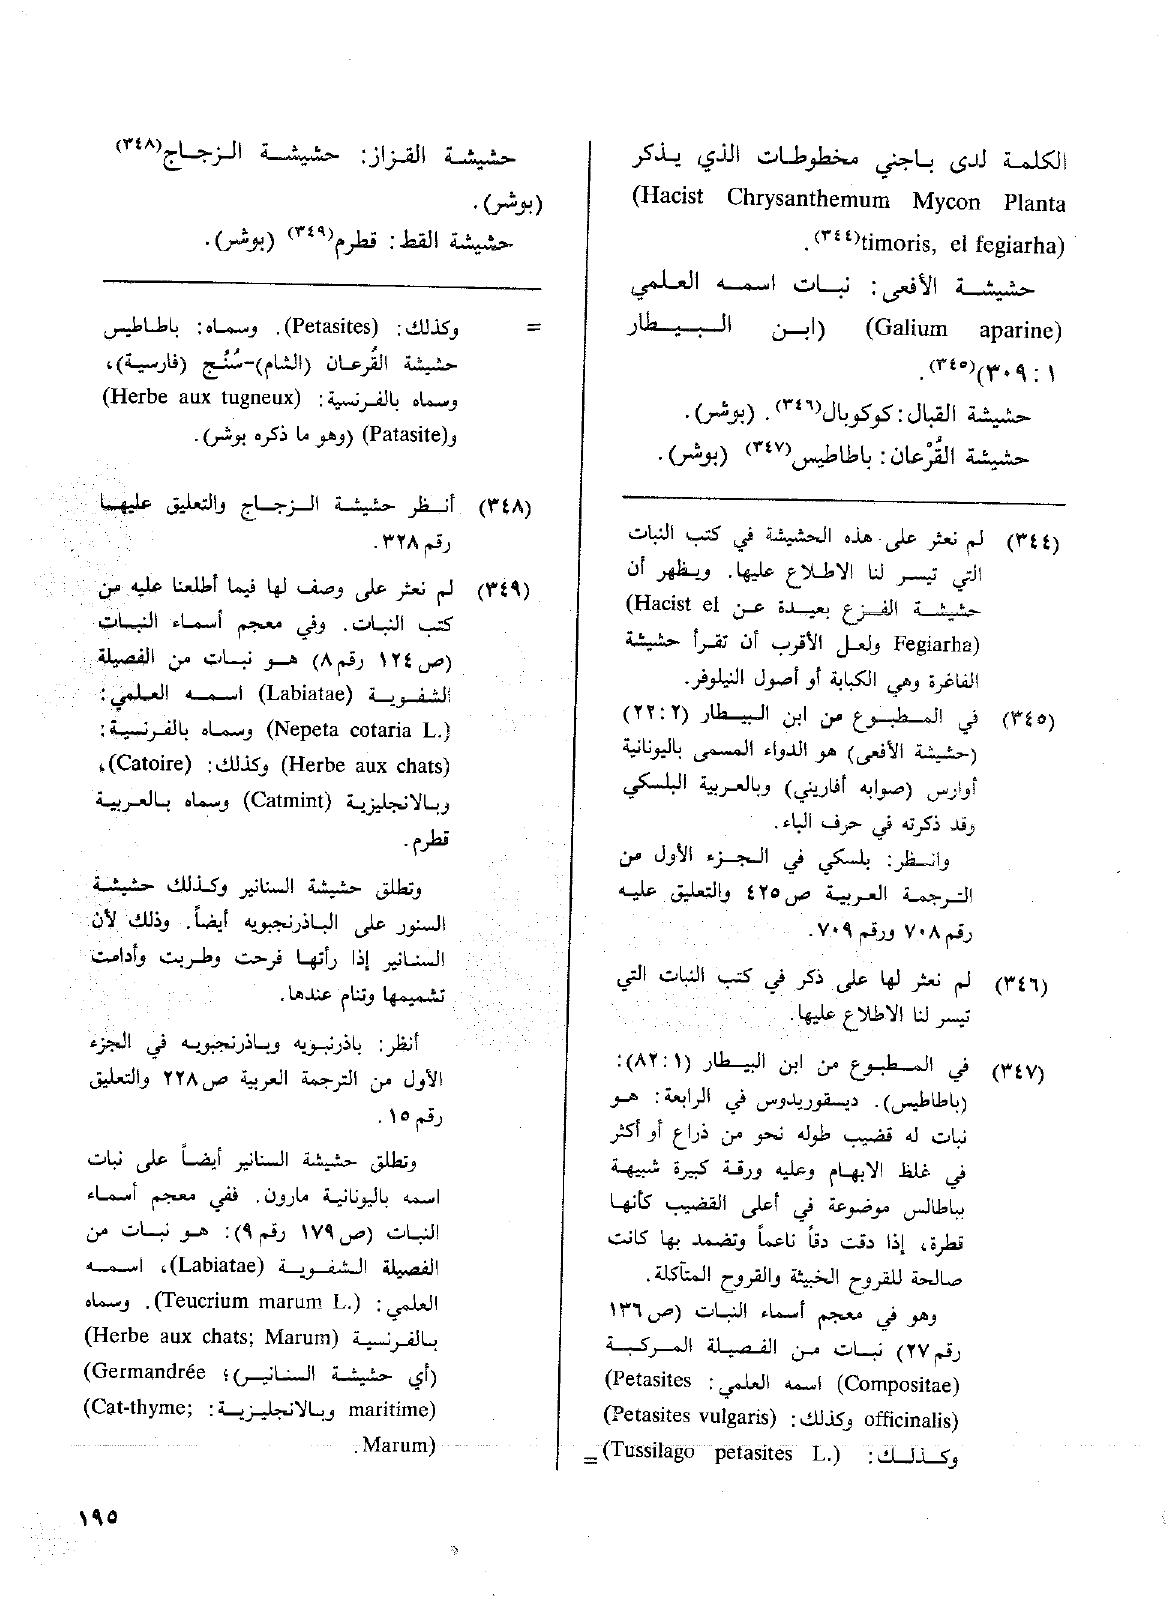 الكلمة لدى باجني مخطوطات الذي يذكر
(Hacist Chrysanthemum Mycon Planta
timoris, el fegiarha)(٣٤٤).
حشيشة الأفعى: نبات اسمه العلمي
(Galium aparine) (ابن البيطار
١: ٣٠٩)(٣٤٥).
حشيشة القبال: كوكوبال(٣٤٦). (بوشر).
حشيشة القُرْعان: باطاطيس(٣٤٧) (بوشر).
(٣٤٤) لم نعثر على هذه الحشيشة في كتب النبات
التي تيسر لنا الاطلاع عليها. ويظهر أن
حشيشة الفزع بعيدة عن (Hacist el
Fegiarha) ولعل الأقرب أن تقرأ حشيشة
الفاغرة وهي الكبابة أو أصول النيلوفر.
(٣٤٥) في المطبوع من ابن البيطار (٢: ٢٢)
(حشيشة الأفعى) هو الدواء المسمى باليونانية
أوارس (صوابه أفاريني) وبالعربية البلسكي
وقد ذكرته في حرف الباء.
وانظر: بلسكي في الجزء الأول من
الترجمة العربية ص٤٢٥ والتعليق عليه
رقم ٧٠٨ ورقم ٧٠٩.
(٣٤٦) لم نعثر لها على ذكر في كتب النبات التي
تيسر لنا الاطلاع عليها.
(٣٤٧) في المطبوع من ابن البيطار (١: ٨٢):
(باطاطيس). ديسقوريدوس في الرابعة: هو
نبات له قضيب طوله نحو من ذراع أو أكثر
في غلظ الابهام وعليه ورقة كبيرة شبيهة
بباطالس موضوعة في أعلى القضيب كأنها
قطرة، إذا دقت دقاً ناعماً وتضمد بها كانت
صالحة للقروح الخبيثة والقروح المتآكلة.
وهو في معجم أسماء النبات (ص١٣٦
رقم ٢٧) نبات من الفصيلة المركبة
(Compositae) اسمه العلمي: (Petasites
officinalis) وكذلك: (Petasites vulgaris)
وكذلك: (Tussilago petasites L.) =
حشيشة القزاز: حشيشة الزجاج(٣٤٨)
(بوشر).
حشيشة القط: قطرم(٣٤٩) (بوشر).
= وكذلك: (Petasites). وسماه: باطاطيس
حشيشة القُرعان (الشام)-سُنُج (فارسية)،
وسماه بالفرنسية: (Herbe aux tugneux)
و(Patasite) (وهو ما ذكره بوشر).
(٣٤٨) أنظر حشيشة الزجاج والتعليق عليها
رقم ٣٢٨.
(٣٤٩) لم نعثر على وصف لها فيما أطلعنا عليه من
كتب النبات. وفي معجم أسماء النبات
(ص١٢٤ رقم ٨) هو نبات من الفصيلة
الشفوية (Labiatae) اسمه العلمي:
(Nepeta cotaria L.) وسماه بالفرنسية:
(Herbe aux chats) وكذلك: (Catoire)،
وبالانجليزية (Catmint) وسماه بالعربية
قطرم.
وتطلق حشيشة السنانير وكذلك حشيشة
السنور على الباذرنجبويه أيضاً. وذلك لأن
السنانير إذا رأتها فرحت وطربت وأدامت
تشميمها وتنام عندها.
أنظر: باذرنبويه وباذرنجبويه في الجزء
الأول من الترجمة العربية ص٢٢٨ والتعليق
رقم ١٥.
وتطلق حشيشة السنانير أيضاً على نبات
اسمه باليونانية مارون. ففي معجم أسماء
النبات (ص١٧٩ رقم ٩): هو نبات من
الفصيلة الشفوية (Labiatae)، اسمه
العلمي: (Teucrium marum L.). وسماه
بالفرنسية (Herbe aux chats; Marum)
(أي حشيشة السنانير)؛ (Germandrée
maritime) وبالانجليزية: (Cat-thyme;
Marum).
١٩٥